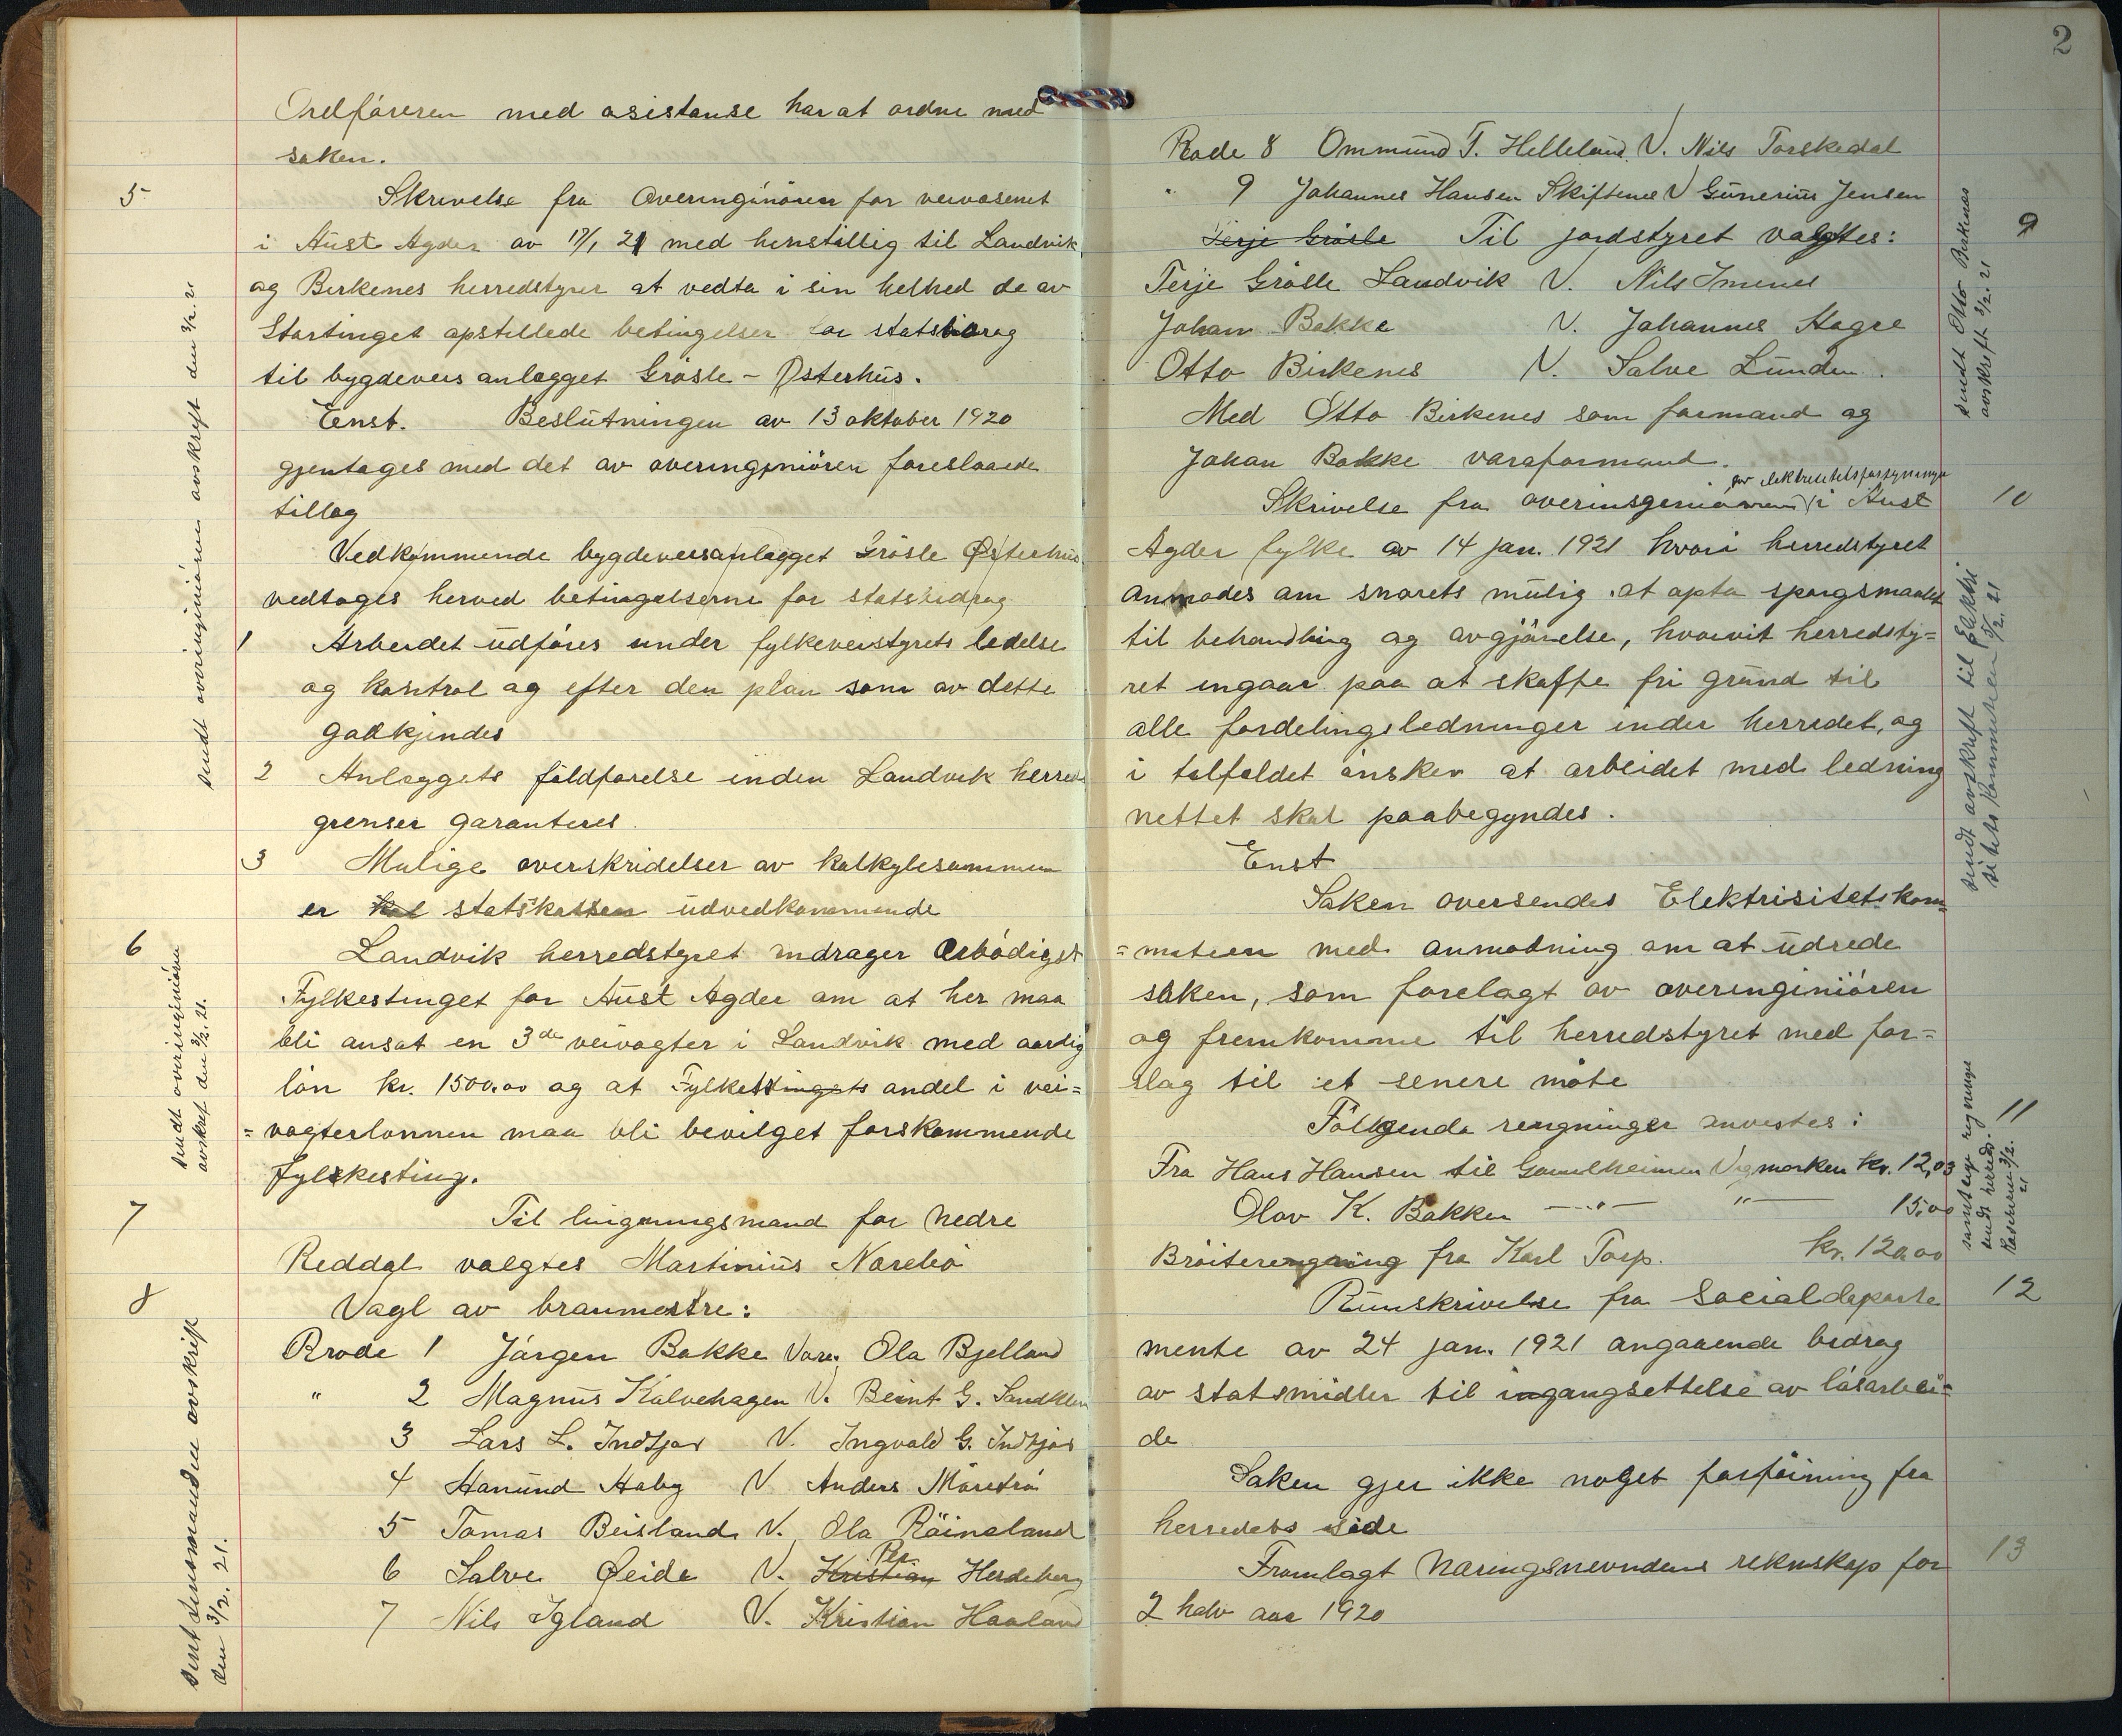 Ordföreren med asistanse har at ordne med
saken.
5 Skrivelse fra Overinginören for veivæsenet
i Aust Agder av 17/1 21 med henstillig til Landvik
og Birkenes herredstyrer at vedta i sin helhed de av
Stortinget opstillede betingelser for statsbidrag
til bygdeveisanlægget Grösle - Østerhus.
Enst. Beslutningen av 13 oktober 1920
gjentages med det av overingeniören foreslaaede
tillæg
Vedkommende bygdeveisanlægget Grösle Østerhus
vedtages herved betingelserne for statsbidrag
1 Arbeidet udföres under fylkeveistyrets ledelse
og kontrol og efter den plan som av dette
godkjendes
2 Anlæggets fuldførelse inden Landvik herreds
grenser garanteres.
3 Mulige overskridelser av kalkylesummen
er statskassen udvedkommende
6 Landvik herredstyret andrager ærbödigst
Fylkestinget for Aust Agder om at her maa
bli ansat en 3de veivogter i Landvik med aarlig
lön kr. 1500.00 og at Fylketstingets andel i vei=
=vogterlønnen maa bli bevilget førskommende
fylkesting.
7 Til ligningsmand for nedre
Reddal valgtes Martinius Norebö
8 Vagl av branmestre:
Rode 1 Jørgen Bakke Vara. Ola Bjelland
" 2 Magnus Kalvehagen V. Beint G. Landklev
3 Lars L. Indtjør V. Ingvald G. Indtjør
4 Aanund Haby V. Anders Möretrö
5 Tomas Beisland V. Ola Röinaland
6 Salve Øeide V. Kristian Per Herdeberg
7 Nils Igland V. Kristian Haaland
sendt overinginören avskrift den 3/2. 21
sendt overinginören
avskrif den 3/2. 21.
sent lensmanden avskrift
den 3/2. 21.
2
Rode 8 Ommund T. Helleland. V. Nils Torskedal
" 9 Johannes Hansen Skiftenes V Gunerius Jensen
9 Terje Grösle Til jordstyret valgtes:
Terje Grösle Landvik V. Nils Imenes
Johan Bakke V. Johannes Hagre
Otto Birkenes V. Salve Lunden.
Med Otto Birkenes som formand og
Johan Bakke varaformand.
for elektrisitetsforsyninga
10 Skrivelse fra overinsgeniören i Aust
Agder fylke av 14 jan. 1921 hvori herredstyret
anmodes om snarets mulig at opta spørgsmaalet
til behandling og avgjörelse, hvorvit herredsty=
ret ingaar paa at skaffe fri grund til
alle fordelingsledninger inder herredet, og
i tilfældet önsker at arbeidet med ledning
nettet skal paabegyndes.
Enst
Saken oversendes Elektrisitetskom=
=miteen med anmodning om at udrede
saken, som forelagt av overinginiören
og fremkomme til herredstyret med for=
slag til et senere möte
11 Fölgende rengninger anvistes:
Fra Hans Hansen til Gamlheimen Vegmarken kr. 12,03
Olav K. Bakken — " — " — 15,00
Bröiterengning fra Karl Torp. kr. 120.00
12 Runskrivelse fra Socialdeparte
mente av 24 jan. 1921 angaaende bidrag
av statsmidler til ingangsettelse av lösarbei=
de
Saken gjer ikke noget forföining fra
herredets side
13 Framlagt Næringsnevndens reknskap for
2 halv aar 1920
sendt Otto Birkenes
avskrift 3/2. 21
sendt avskrift til Elektri
sitets kommiteen 3/2. 21
samtlige regninge
sendt herreds.
kaserern 3/2.
21